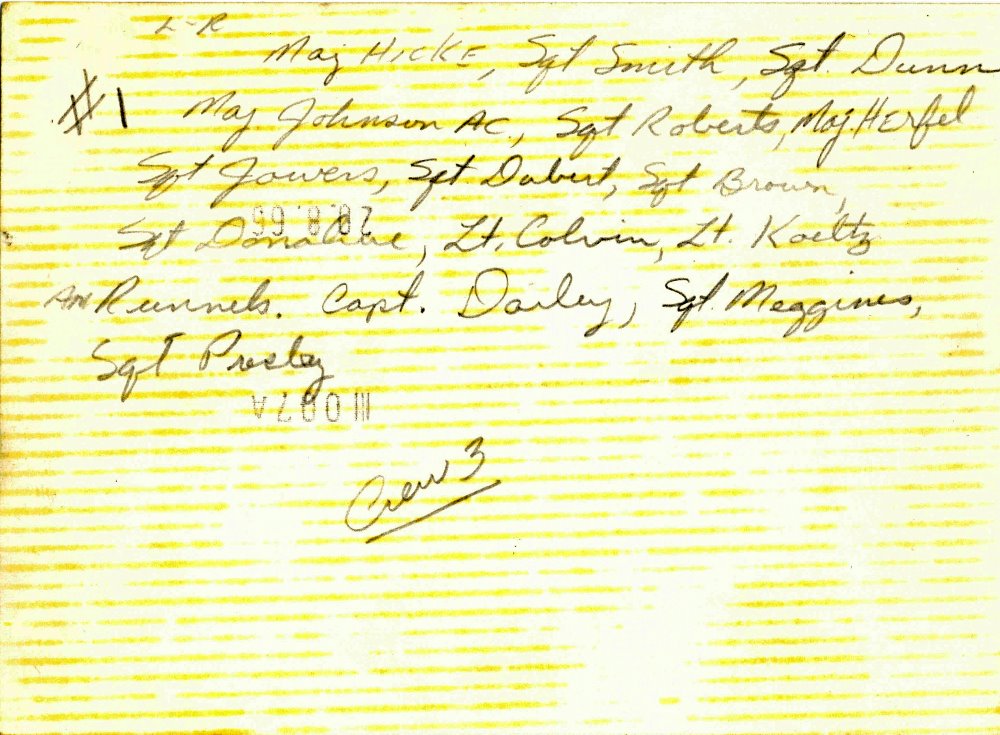 L-R
Maj Hicke, Sgt Smith, Sgt. Dunn
#1 Maj. Johnson AC, Sgt Roberts, Maj. Herfel
Sgt Jowers, Sgt. Dabert, Sgt Brown,
Sgt Donahue, Lt. Colvin, Lt. Koeltz
28.8.66
AM Runnels. Capt. Dailey, Sgt. Meggines,
Sgt Presley
Crew 3